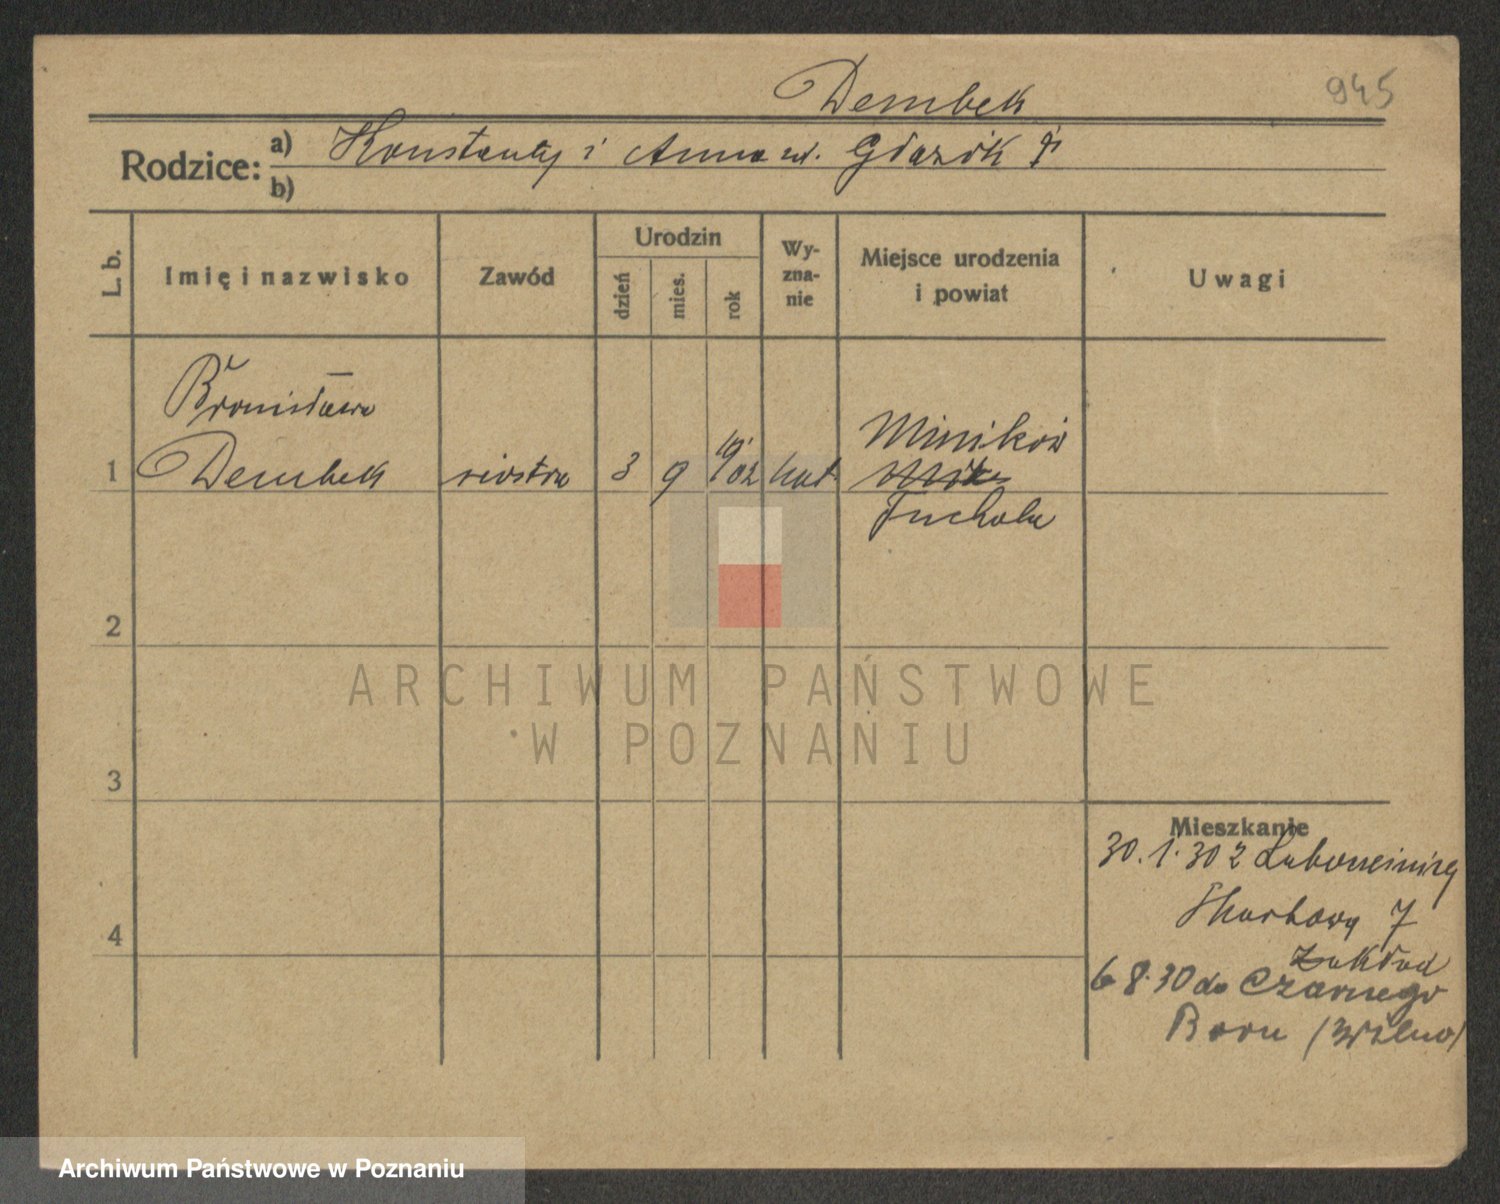 Dembek
945
Rodzice:
a) Konstanty i Anna
b)
L. b.
Imię i nazwisko
Zawód
Urodzin
dzień
mies.
rok
Wy-
zna-
nie
Miejsce urodzenia
i powiat
Uwagi
Bronisława
1 Dembek siostra 3 9 19/02 kat. Minikow
Tuchola
2
3
4
Mieszkanie
30.1.30 z
Skarbowa 7
Zakład
6 8.30 do Czarnego
Boru (Wilno)
ARCHIWUM PAŃSTWOWE
W POZNANIU
Archiwum Państwowe w Poznaniu